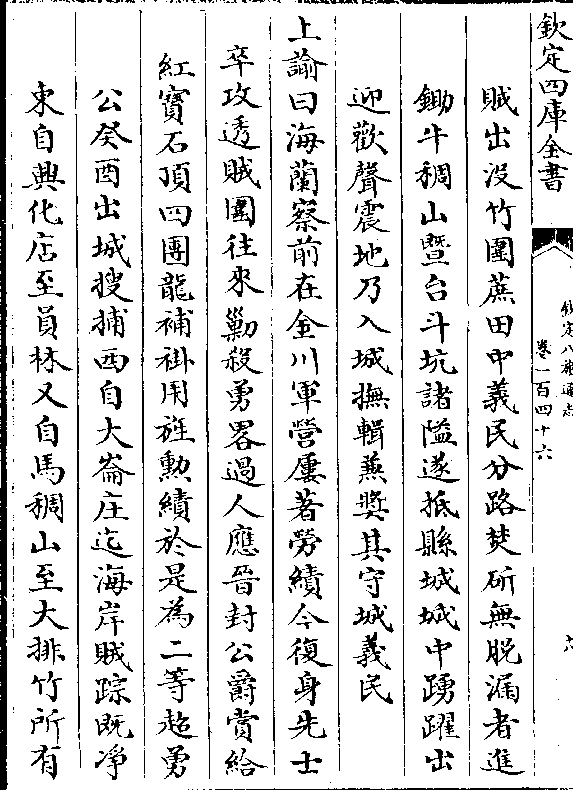 欽定四庫全書
欽定八旗通志
卷一百四十六
六
賊出沒竹圍蔗田中義民分路焚斫無脫漏者進
鋤牛稠山暨台斗坑諸隘遂抵縣城城中踴躍出
迎歡聲震地乃入城撫輯蕪奬其守城義民
上諭曰海蘭察前在金川軍營屢著勞績今復身先士
卒攻透賊圍往來勦殺勇畧過人應晉封公爵賞給
紅寶石頂四團龍補褂用旌勲績於是為二等超勇
公癸酉出城搜捕西自大崙庄迄海岸賊踪既凈
東自興化店至員林又自馬稠山至大排竹所有